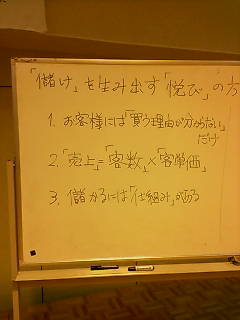 「儲け」を生み出す「悦び」の方
1. お客様には「買う理由が分からない」
だけ
2.「売上」=「客数」×「客単価」
3. 儲かるには「仕組み」がある